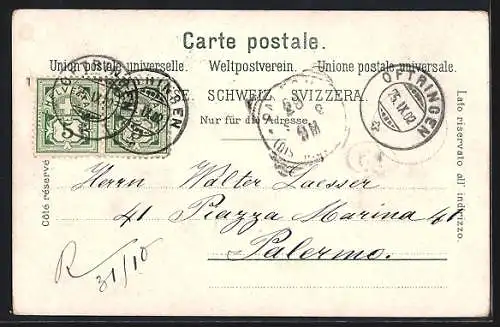 Carte postale.
Union postale universelle. Weltpostverein. Unione postale universale.
SCHWEIZ. SVIZZERA.
Nur für die Adresse.
OFTRINGEN
25.IX.02
HELVETIA
5
5
Côté réservé
Lato riservato all' indirizzo.
Herrn Walter Laesser
41 Piazza Marina 41
Palermo.
R
31/10